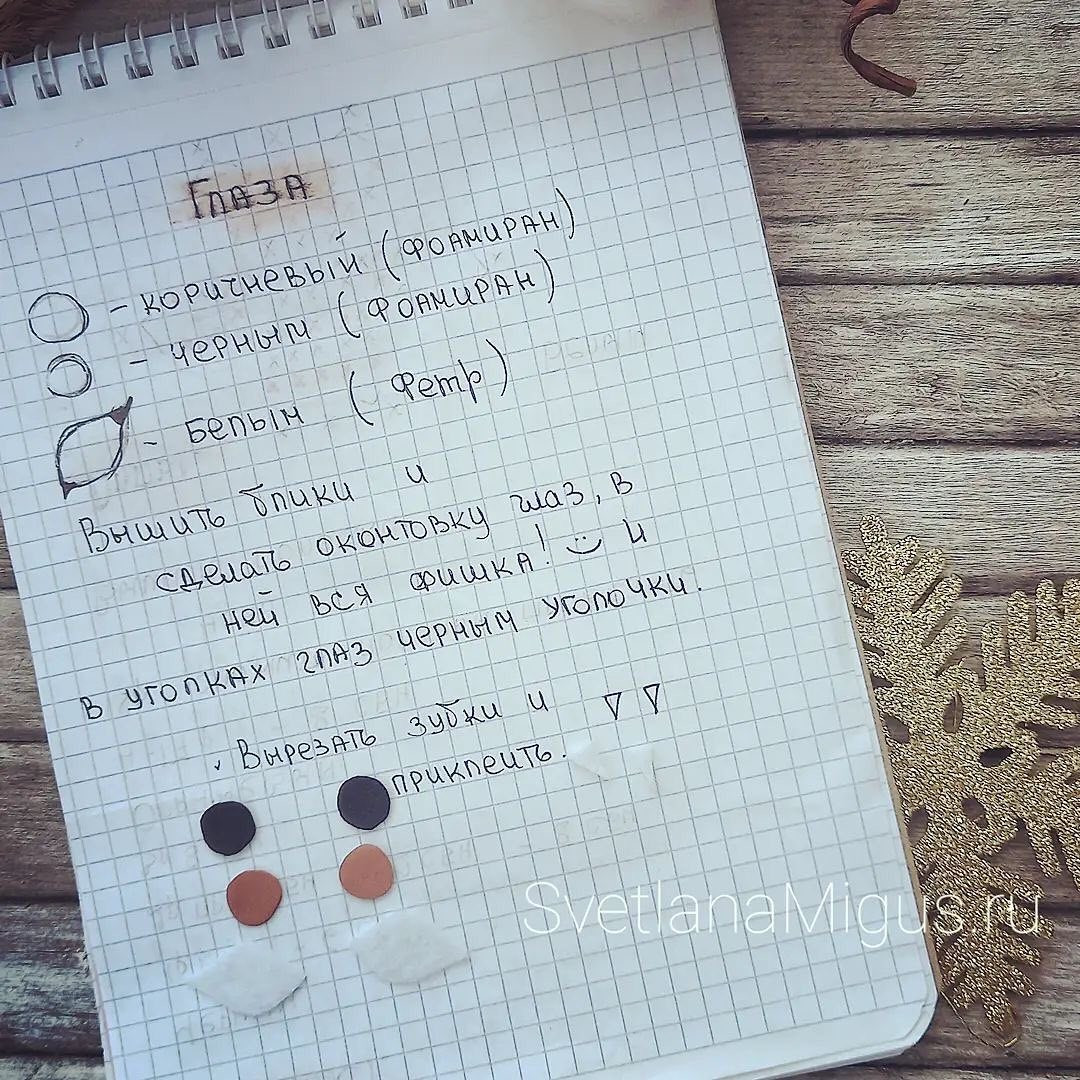 Глаза
- коричневый (фоамиран)
- черным (фоамиран)
- белым (фетр)
Вышить блики и
сделать оконтовку глаз, в
ней вся фишка! и
в уголках глаз черным уголочки.
. Вырезать зубки и
приклеить.
SvetlanaMigus.ru